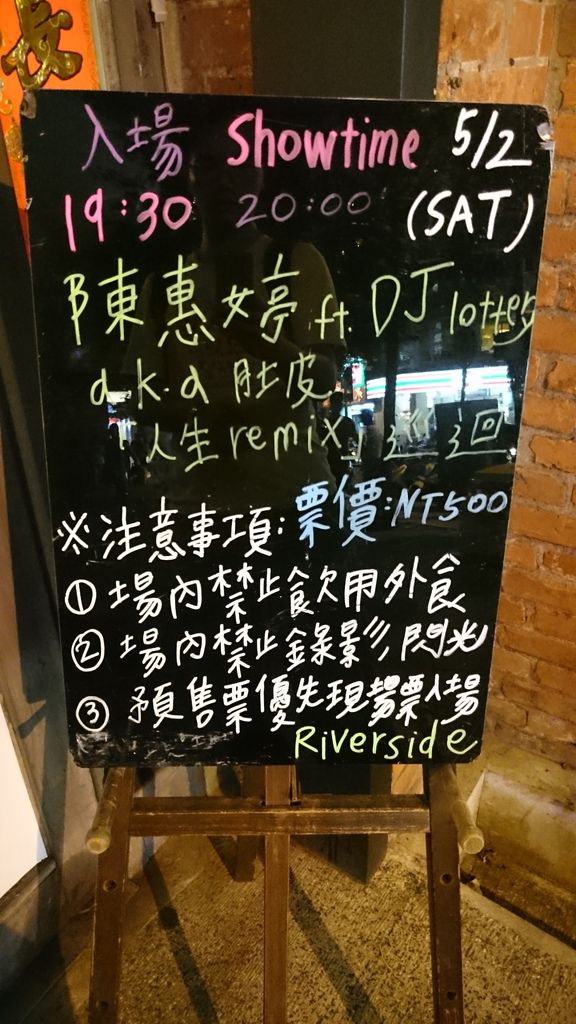 入場 Showtime 5/2
19:30 20:00 (SAT)
陳惠婷 ft. DJ lottery
a.k.a 肚皮
「人生remix」巡迴
※注意事項: 票價:NT500
① 場內禁止飲用外食
② 場內禁止錄影/閃光
③ 預售票優先現場票入場
Riverside